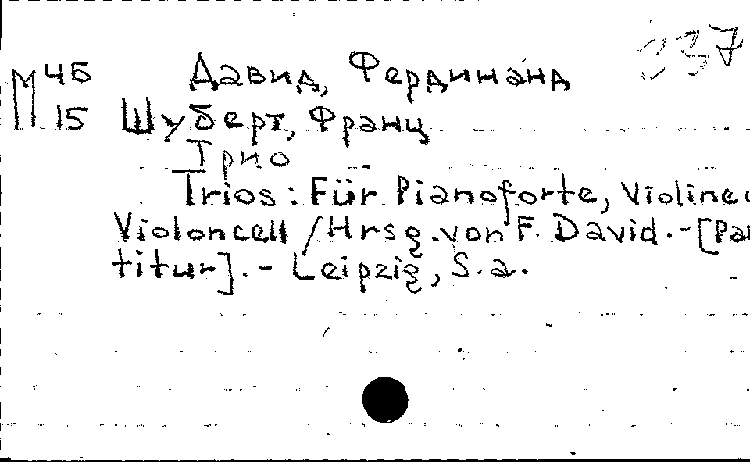 337
М 45 Давид, Фердинанд
15 Шуберт, Франц
Трио
Trios : Für Pianoforte, Violine u
Violoncell / Hrsg. von F. David. - [Par
titur]. - Leipzig, S. a.